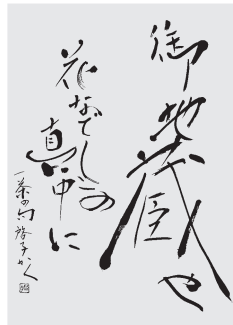 御地蔵や
花なでしこの
真中に
一茶の句 啓子かく